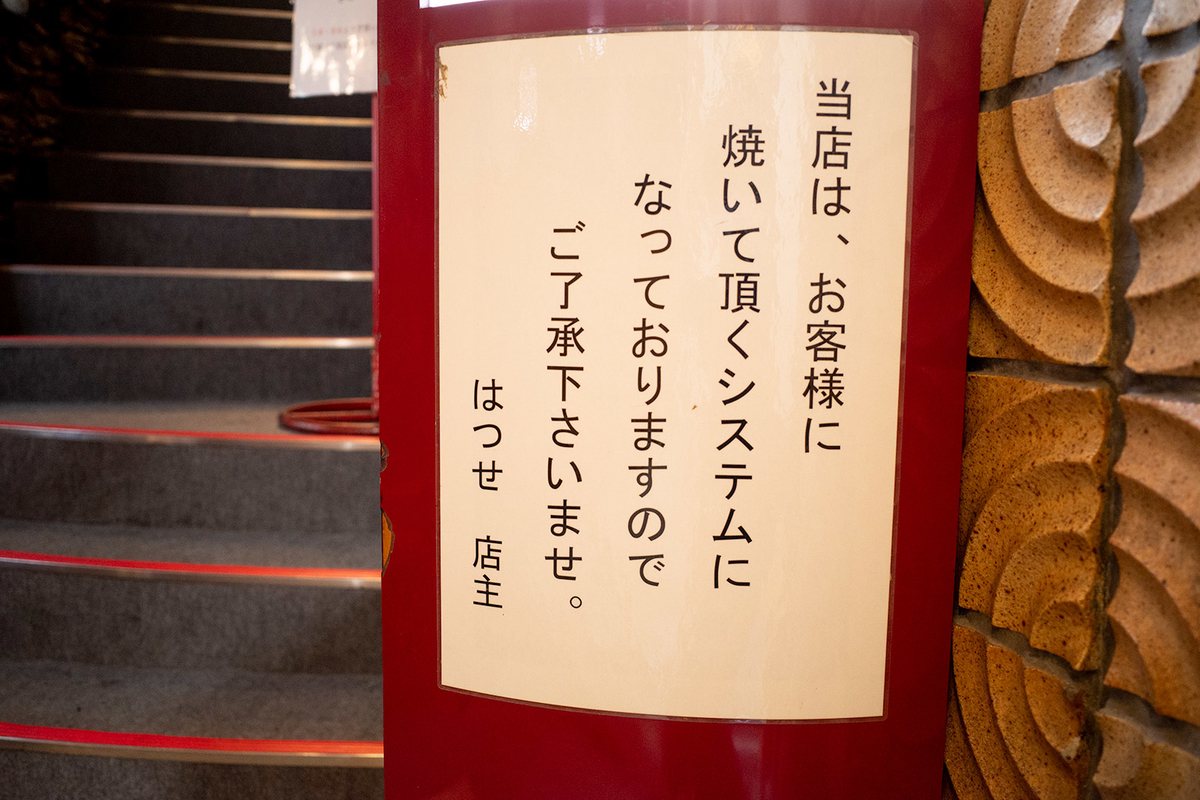 当店は、お客様に
焼いて頂くシステムに
なっておりますので
ご了承下さいませ。
はつせ　店主